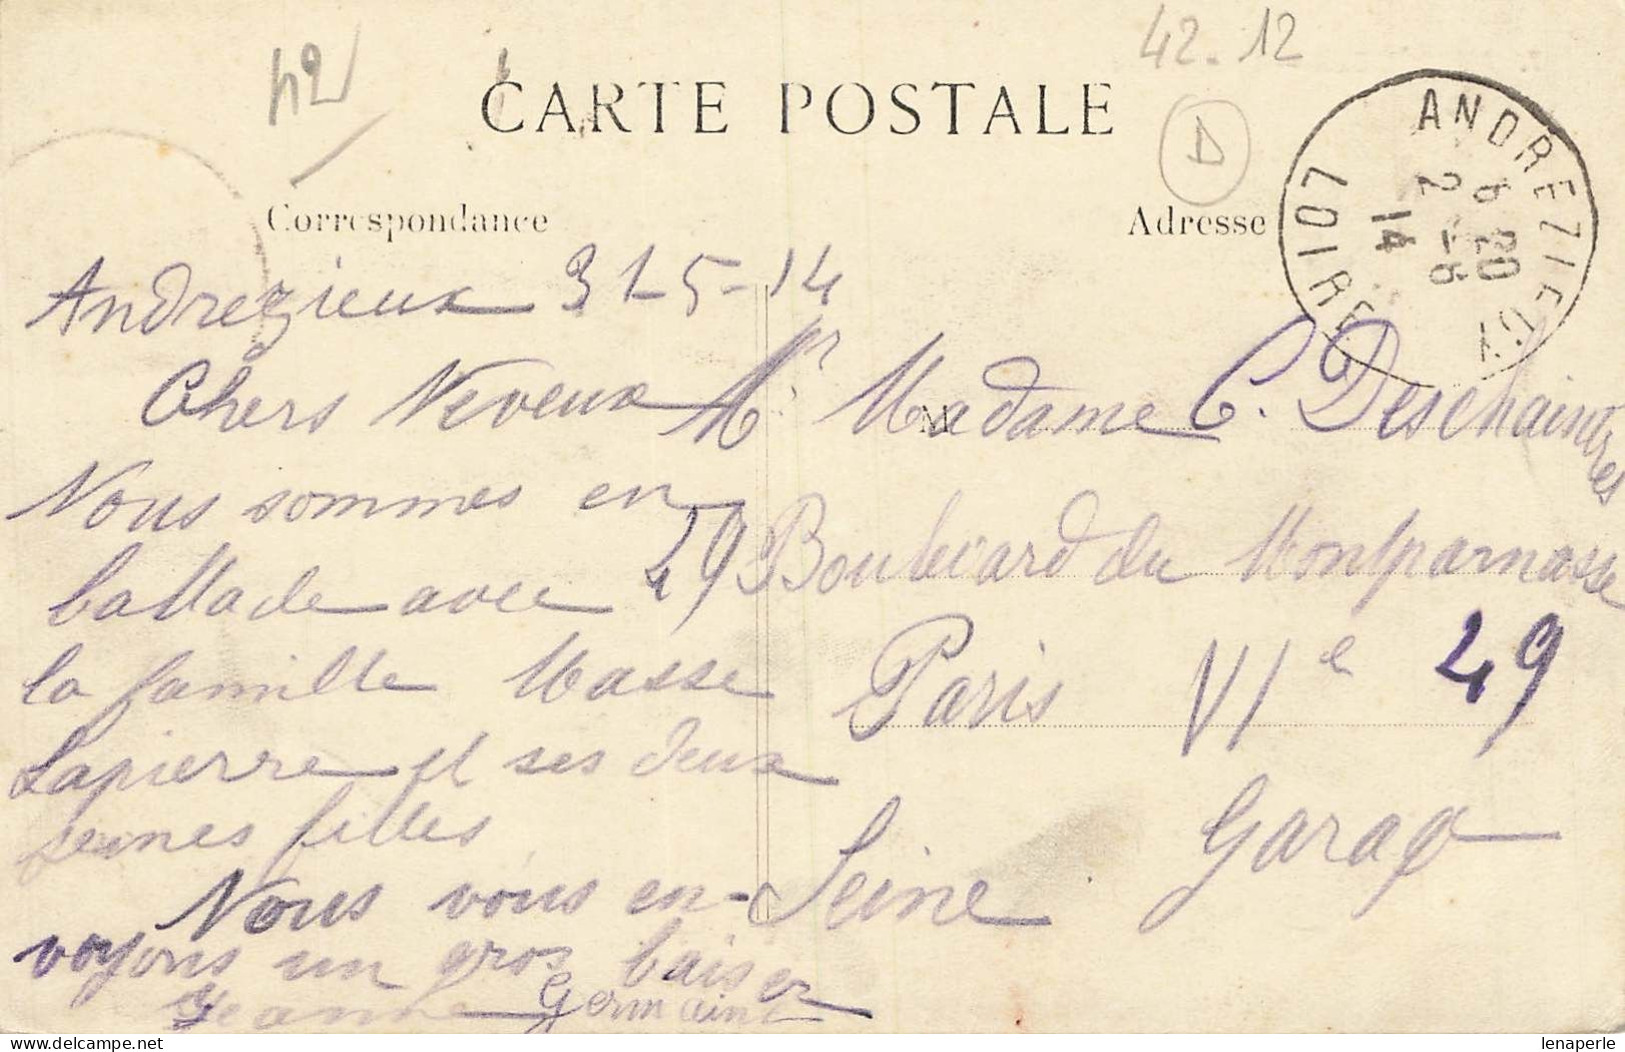 42
42-12
CARTE POSTALE
D
Correspondance
Adresse
ANDREZIEUX
6 20
2 -6
14
LOIRE
Andrezieux 31-5-14
Chers Neveux
Nous sommes en
ballade avec
la famille Masse
Lapierre et ses deux
jeunes filles
Nous vous en-
voyons un gros baiser
Jeanne Germaine
Mr Madame C. Deschaintres
49 Boulevard du Montparnasse
Paris VIe 49
Garage
Seine
delcampe.net
lenaperle